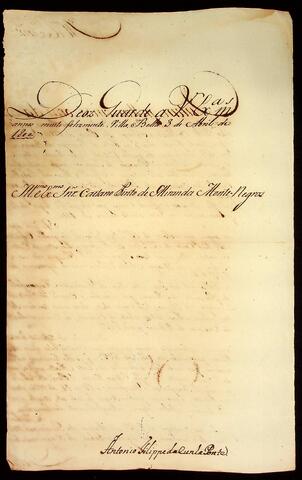 Deos Guarde a V. Ex.as m
annos muito felizmente. Villa Bella 3 de Abril de
1802
Mmo. e Exmo. Snr. Caetano Pinto de Miranda Monte-Negro
Antonio Filippe da Cunha Ponte